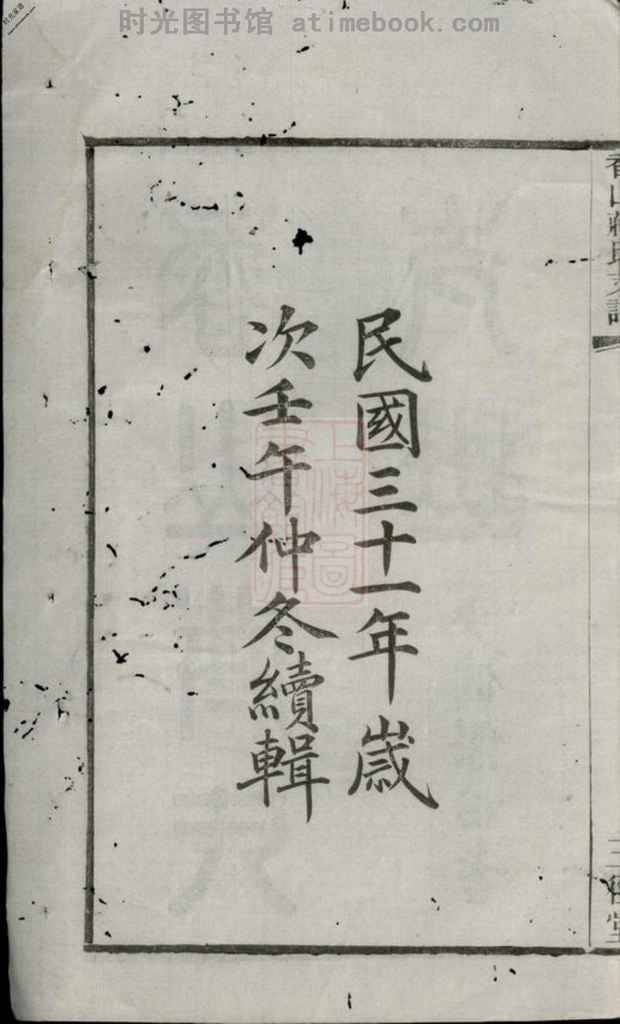 时光图书馆 atimebook.com
民國三十一年歲
次壬午仲冬續輯
香山蔣氏支譜
三徑堂